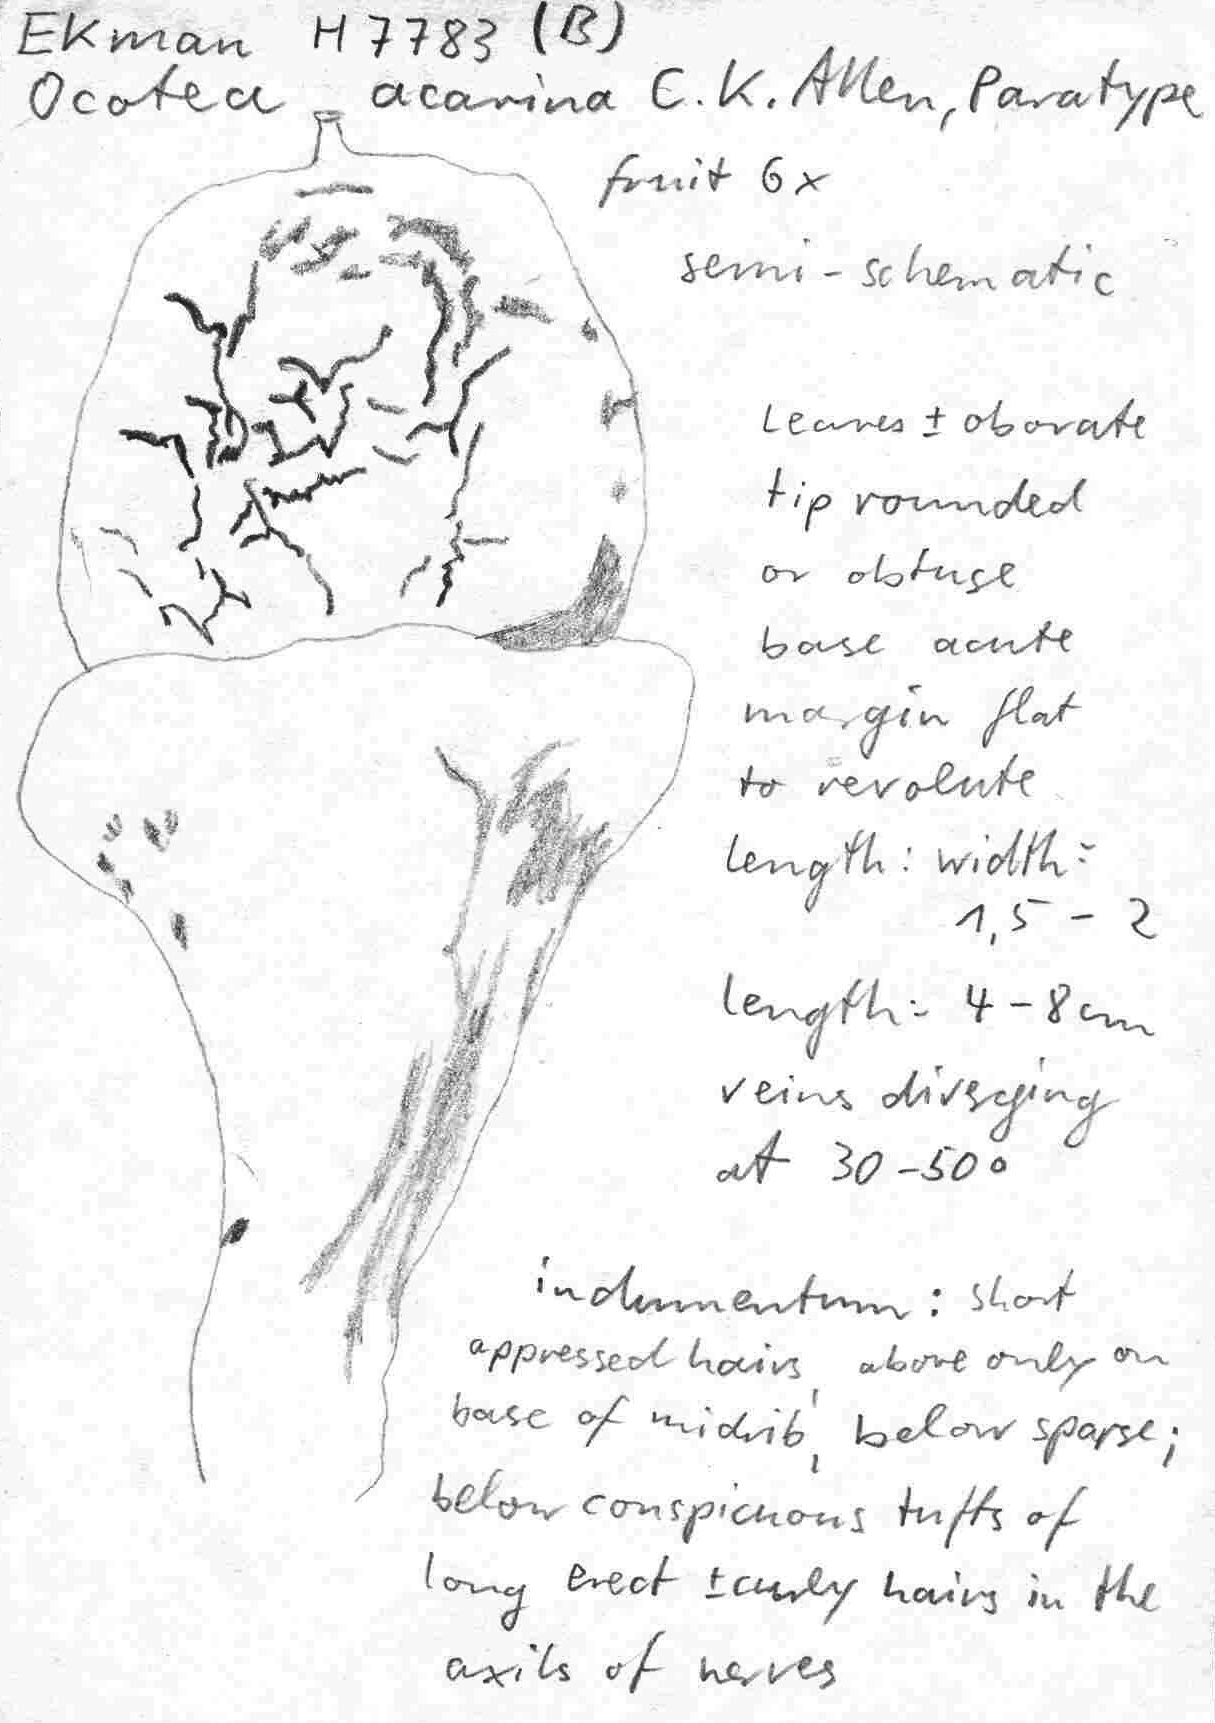 Ekman H7783 (B)
Ocotea acarina C.K. Allen, Paratype
fruit 6x
semi-schematic
Leaves ± obovate
tip rounded
or obtuse
base acute
margin flat
to revolute
length: width:
1,5 - 2
length: 4-8cm
veins diverging
at 30-50°
indumentum: short
appressed hairs, above only on
base of midrib, below sparse;
below conspicuous tufts of
long erect ± curly hairs in the
axils of nerves